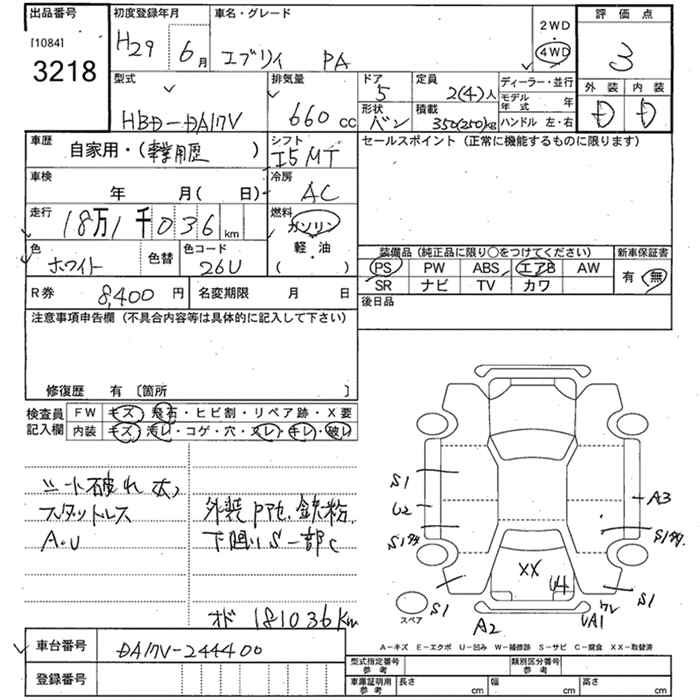 出品番号
[1084]
3218
初度登録年月
H29年 6月
車名・グレード
エブリィ PA
2WD
4WD
評価点
3
外装 内装
D D
型式
HBD-DA17V
排気量
660 cc
ドア
5
形状
バン
定員
2(4)人
積載
350(250)kg
ディーラー・並行
モデル年式 年
ハンドル 左・右
車歴
自家用・(事業用歴)
シフト
I5MT
セールスポイント(正常に機能するものに限ります)
車検
年 月( 日)
冷房
AC
走行
18万1千036km
燃料
ガソリン
軽・油
( )
色
ホワイト
色替
色コード
26U
装備品(純正品に限り○をつけてください)
新車保証書
PS PW ABS エアB AW
SR ナビ TV カワ
有・無
R券 8,400円
名変期限 月 日
後日品
注意事項申告欄(不具合内容等は具体的に記入して下さい)
修復歴 有 [箇所 ]
検査員記入欄
FW キズ・飛石・ヒビ割・リペア跡・X要
内装 キズ・汚レ・コゲ・穴・スレ・キレ・破レ
シート破れ大
スタッドレス
A・U
外装 鉄粉
下廻りS一部C
オド 181036km
S1
U2
S1
S1
A2
スペア
XX
U4
A3
S1
S1
A1
A-キズ E-エクボ U-凹み W-補修跡 S-サビ C-腐食 XX-取替済
車台番号
DA17V-244400
登録番号
型式指定番号 参考
類別区分番号 参考
車庫証明用 参考
長さ cm
幅 cm
高さ cm